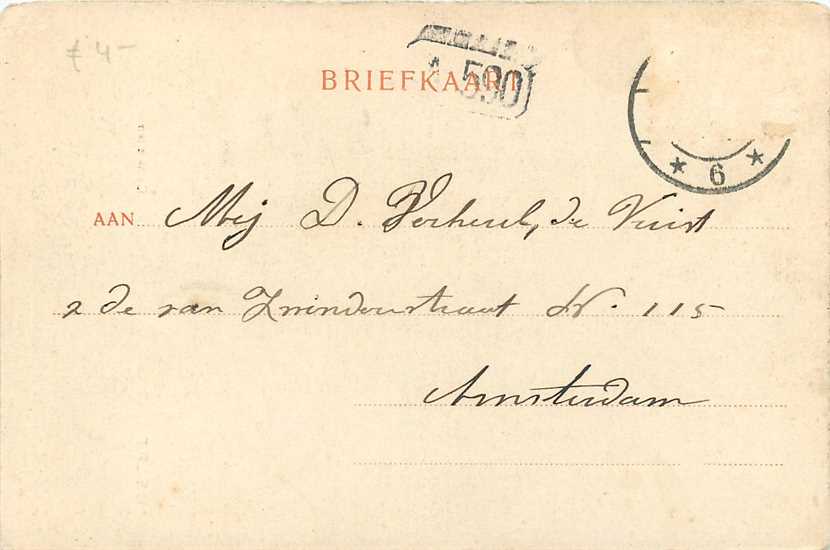 € 4-
BRIEFKAART
590
* 6 *
AAN Mej D. Verheul, de Vuist
2 de van Swindenstraat N. 115
Amsterdam